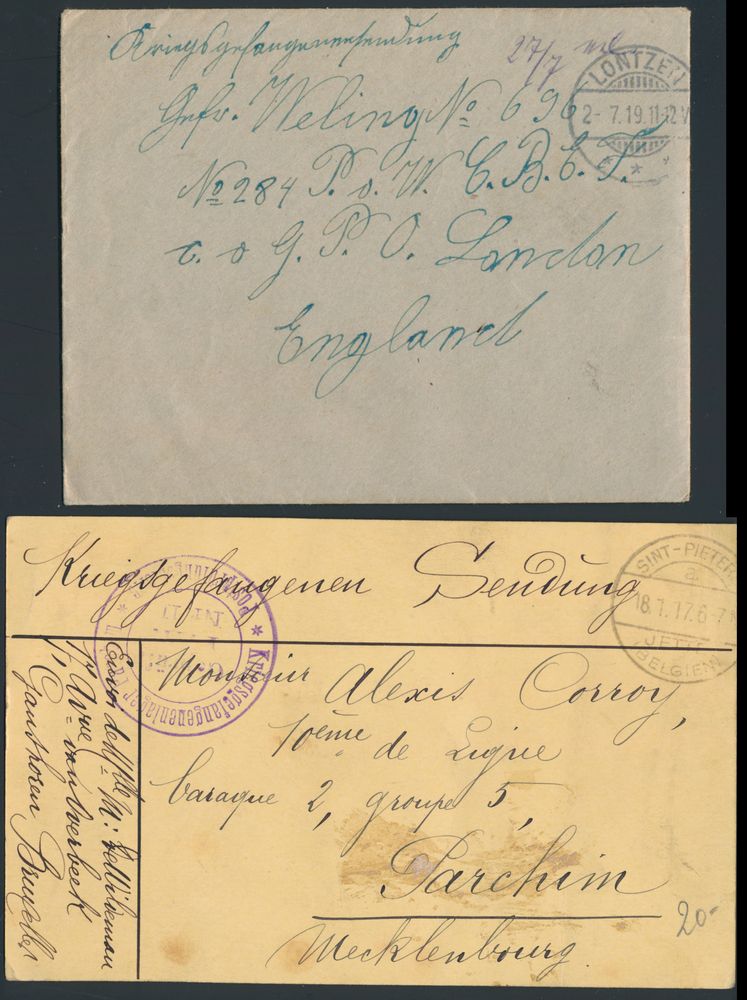 Kriegsgefangenensendung
27/7
LONTZEN
2-7.19.11-12V
* * *
Gefr. Weling No 696
No 284 P. o. W. C. B. E. F.
c. o G. P. O. London
England
Kriegsgefangenen Sendung
SINT-PIETER
a
18.1.17.6-7N
JETTE
(BELGIEN)
* Kriegsgefangenenlager
Monsieur Alexis Corroy,
10ème de Ligne
baraque 2, groupe 5,
Parchim
Mecklenbourg.
Envoi de Mlle M:
17 Avue van Overbeek
Ganshoren Bruxelles
20-